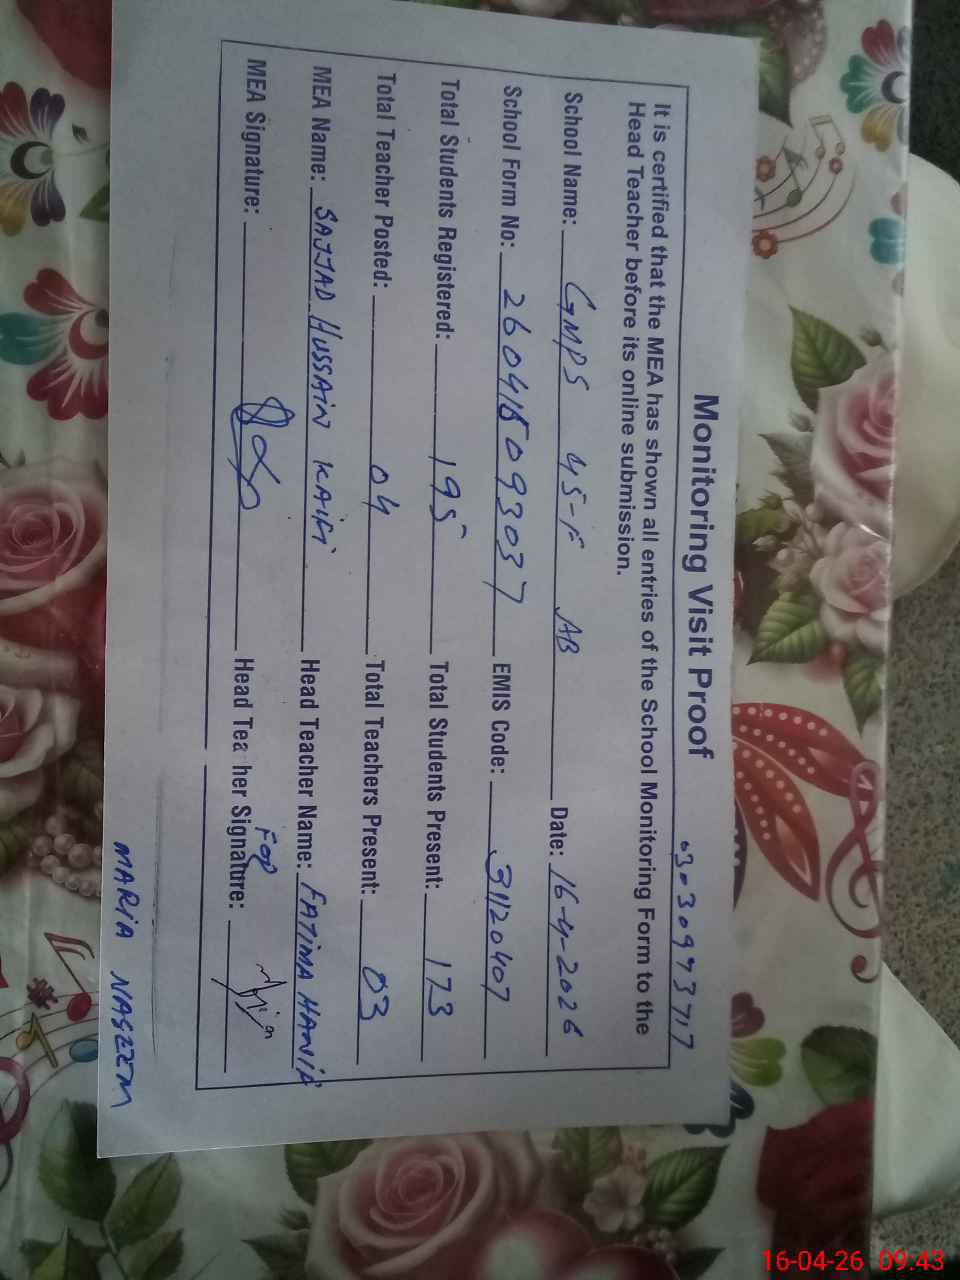 Monitoring Visit Proof 03-309973717
It is certified that the MEA has shown all entries of the School Monitoring Form to the
Head Teacher before its online submission.
School Name: GMPS 45-F AB Date: 16-4-2026
School Form No: 26041509307 EMIS Code: 31120407
Total Students Registered: 195 Total Students Present: 173
Total Teacher Posted: 04 Total Teachers Present: 03
MEA Name: SAJJAD HUSSAIN KAIFI Head Teacher Name: FATIMA HANIF
MEA Signature: Head Tea her Signature: For
MARIA NASEEM
16-04-26 09:43